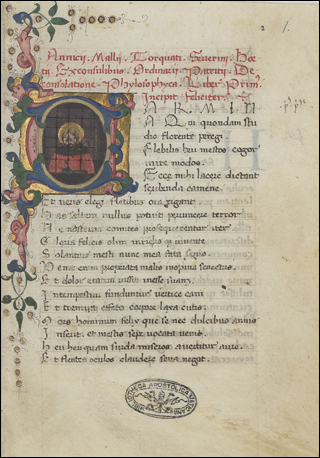 1.
Annicii. Mallii. Torquati. Severini. Boe
tii. Exconsulibus. Ordinarii. Patritii. De
consolatione. Phylosophyca. Liber. Prim'
Incipit Feliciter.
CARMINA
A Qui quondam stu
dio florente peregi
Flebilis heu mestos cogor
inire modos.
Ecce mihi lacere dictant
scribenda camene.
Et veris elegi fletibus ora rigant
Has saltem nullus potuit pervincere terror
Ne nostrum comites prosequerentur iter
Gloria felicis olim viridisque iuvente
Solantur mesti nunc mea fata senis
Venit enim properata malis inopina senectus
Et dolor etatem iussit inesse suam
Intempestivi funduntur vertice cani
Et tremit effeto corpore laxa cutis
Mors hominum felix que se nec dulcibus annis
Inserit et mestis sepe vocata venit
Heu heu quam surda miseros avertitur aure
Et flentes oculos claudere seva negat.
BIBLIOTHECA APOSTOLICA VATICANA